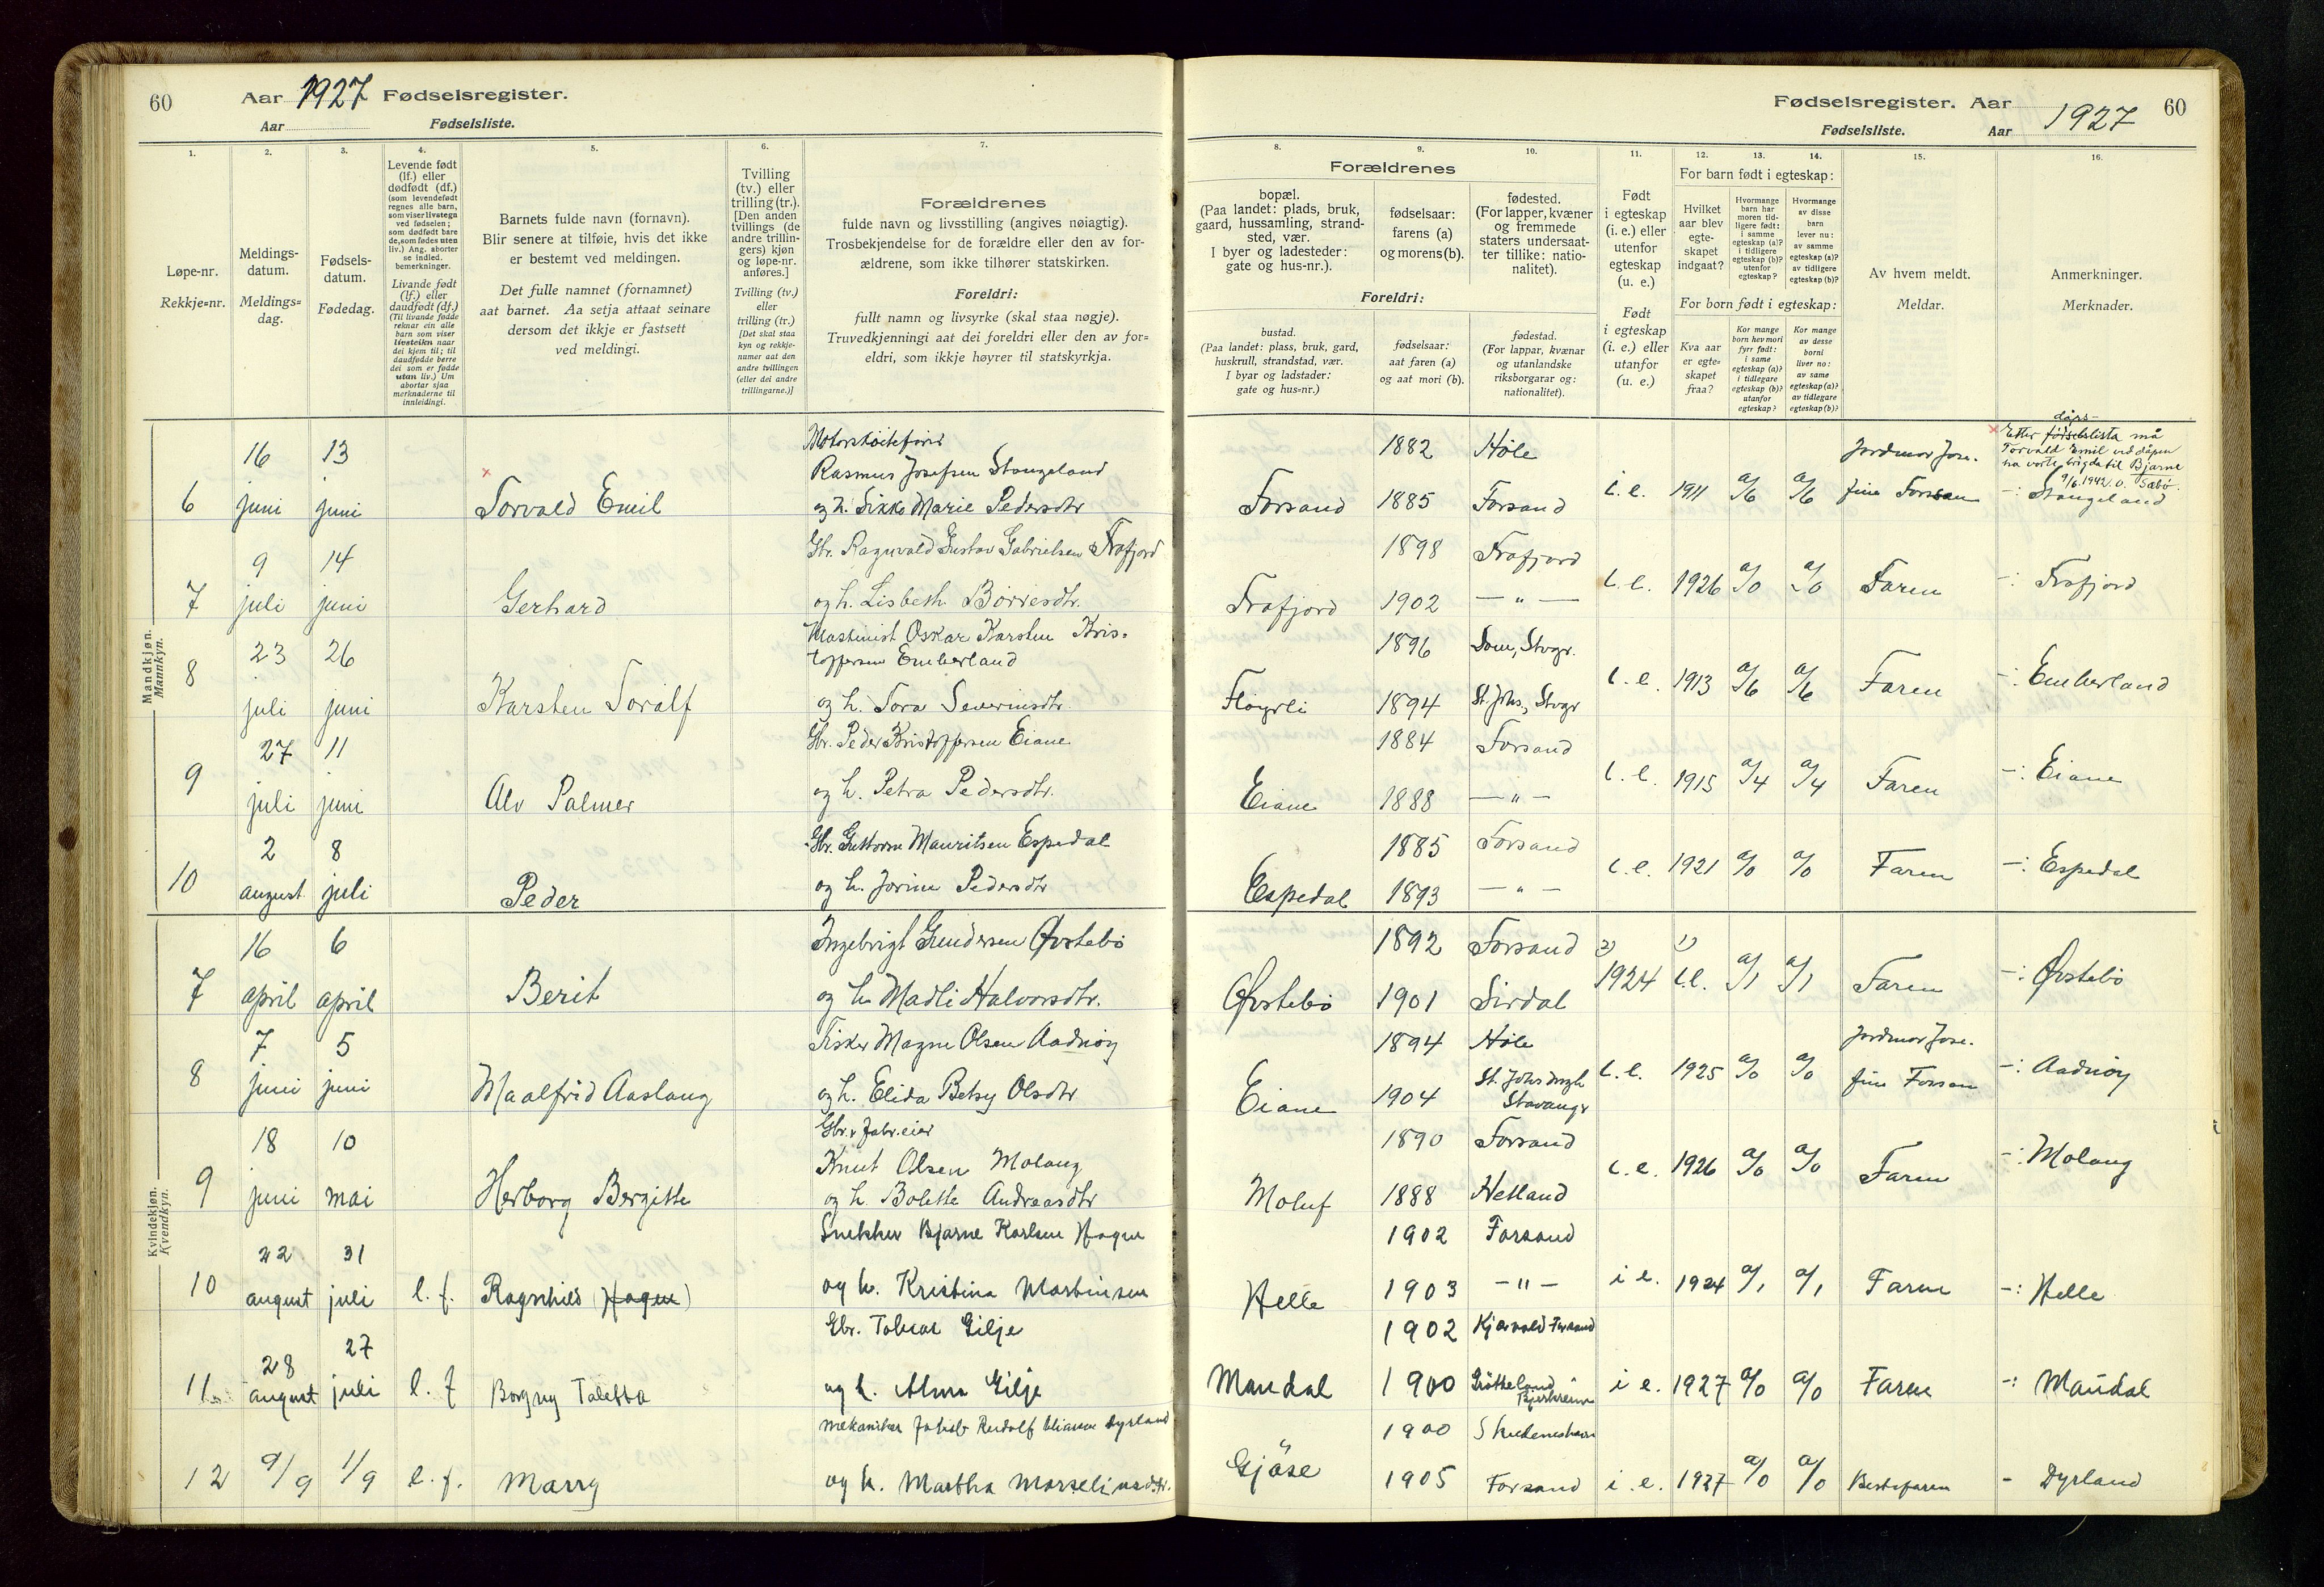 60
Aar 1927 Fødselsregister.
Aar
Fødselsliste.
1.
2.
3.
4.
5.
6.
7.
Løpe-nr.
Rekkje=nr.
Meldings-
datum.
Meldings=
dag.
Fødsels-
datum.
Fødedag.
Levende født
(lf.) eller
dødfødt (df.)
(som levendefødt
regnes alle barn,
som viser livstegn
ved fødselen;
som dødfødt bare
de, som fødes uten
liv.) Ang. aborter
se indled.
bemerkninger.
Livande født
(lf.) eller
daudfødt (df.)
(Til livande fødde
reknar ein alle
barn som viser
livsteikn naar
dei kjem til; til
daudfødde berre
dei som er fødde
utan liv.) Um
abortar sjaa
merknaderne til
innleidingi.
Barnets fulde navn (fornavn).
Blir senere at tilføie, hvis det ikke
er bestemt ved meldingen.
Det fulle namnet (fornamnet)
aat barnet. Aa setja attaat seinare
dersom det ikkje er fastsett
ved meldingi.
Tvilling
(tv.) eller
trilling (tr.).
[Den anden
tvillings (de
andre trillin-
gers) kjøn
og løpe-nr.
anføres.]
Tvilling (tv.)
eller
trilling (tr.)
[Det skal staa
kyn og rekkje-
numer aat den
andre tvillingen
(eller dei andre
trillingarne.)]
Forældrenes
fulde navn og livsstilling (angives nøiagtig).
Trosbekjendelse for de forældre eller den av for-
ældrene, som ikke tilhører statskirken.
Foreldri:
fullt namn og livsyrke (skal staa nøgje).
Truvedkjenningi aat dei foreldri eller den av for=
eldri, som ikkje høyrer til statskyrkja.
Mandkjøn.
Mannkyn.
6
16
juni
13
juni
Torvald Emil
Rasmus Josefsen Stangeland
og h. Sikke Marie Pedersdtr
7
9
juli
14
juni
Gerhard
Gbr. Ragnvald Gustav Gabrielsen Frafjord
og h. Lisbeth Börresdtr.
8
23
juli
26
juni
Karsten Toralf
Maskinist Oskar Karsten Kris-
toffersen Emberland
og h. Tora Severinsdtr.
9
27
juli
11
juni
Alv Palmer
Gbr. Peder Kristoffersen Eiane
og h. Petra Pedersdtr.
10
2
august
8
juli
Peder
Gbr. Guttorm Mauritsen Espedal
og h. Jorine Pedersdtr
Kvindekjøn.
Kvendkyn.
7
16
april
6
april
Berit
Ingebrigt Gundersen Øvstebö
og h. Madli Halvorsdtr.
8
7
juni
5
juni
Maalfrid Aaslaug
Fisker Magne Olsen Aadnöy
og h. Elida Betsy Olsdtr
9
18
juni
10
mai
Herborg Bergitte
Gbr. v fabr.eier
Knut Olsen Molaug
og h. Bolette Andreasdtr
10
22
august
31
juli
l. f.
Ragnhild (Hagen)
Snekker Bjarne Karlsen Hagen
og h. Kristina Martinsen
11.
28
august
27
juli
l. f
Borgny Taletta
Gbr. Tobias Gilje
og h. Alma Gilje
12
9/9
1/9
l. f.
Marry
mekaniker Jakob Rudolf Dyrland
og h. Martha Marselinusdtr.
Fødselsregister. Aar
1927
60
Fødselsliste.
Aar
8.
9.
10.
11.
12.
13.
14.
15.
16.
Forældrenes
bopæl.
(Paa landet: plads, bruk,
gaard, hussamling, strand-
sted, vær.
I byer og ladesteder:
gate og hus-nr.).
fødselsaar:
farens (a)
og morens (b).
fødested.
(For lapper, kvæner
og fremmede
staters undersaat-
ter tillike: natio-
nalitet).
Foreldri:
bustad.
(Paa landet: plass, bruk, gard,
huskrull, strandstad, vær.
I byar og ladstader:
gate og hus=nr.)
fødselsaar:
aat faren (a)
og aat mori (b).
fødestad.
(For lappar, kvænar
og utanlandske
riksborgarar og:
nationalitet).
Født
i egteskap
(i. e.) eller
utenfor
egteskap
(u. e.)
Født
i egteskap
(i. e.) eller
utanfor
(u. e.)
For barn født i egteskap:
Hvilket
aar blev
egte-
skapet
indgaat?
Hvormange
barn har
moren tid-
ligere født:
i samme
egteskap (a)?
i tidligere
egteskap (b)?
utenfor
egteskap?
Hvormange
av disse
barn
lever nu:
av samme
egteskap (a)?
av tidligere
egteskap (b)?
For born født i egteskap:
Kva aar
er egte-
skapet
fraa?
Kor mange
born hev mori
fyrr født:
i same
egteskap (a)?
i tidlegare
egteskap (b)?
utanfor
egteskap?
Kor mange
av desse
borni
liver no:
av same
egteskap (a)?
av tidlegare
egteskap (b)?
Av hvem meldt.
Meldar.
Anmerkninger.
Merknader.
Forsand
1882
1885
Høle
Forsand
i. e.
1911
a/6
a/6
Jordmor Jose-
fine Forssan
døps-
Etter fødselslista må
Torvald Emil ved dåpen
ha vorte brigda til Bjarne
9/6.1942. O. Sæbö.
-: Stangeland
Frafjord
1898
1902
Frafjord
— " —
i. e.
1926
a/0
a/0
Faren
-: Frafjord
Flöyrli
1896
1894
Dom, Stvgr.
St. Johs., Stvgr
i. e.
1913
a/6
a/6
Faren
-: Emberland
Eiane
1884
1888
Forsand
— " —
i. e.
1915
a/4
a/4
Faren
-: Eiane
Espedal
1885
1893
Forsand
— " —
i. e.
1921
a/0
a/0
Faren
-: Espedal
Øvstebö
1892
1901
Forsand
Sirdal
2)
1924
1)
i. e.
a/1
a/1
Faren
-: Øvstebö
Eiane
1894
1904
Høle
Stavangr
i. e.
1925
a/0
a/0
Jordmor Jose-
fine Forssan
-: Aadnöy
Moluf
1890
1888
Forsand
Hetland
i. e.
1926
a/0
a/0
Faren
-: Molaug
Helle
1902
1903
Forsand
— " —
i e.
1924
a/1
a/1
Faren
-: Helle
Maudal
1902
1900
Kjervald Forsand
Bjerkreim
i e.
1927
a/0
a/0
Faren
-: Maudal
Gjöse
1900
1905
Skudeneshavn
Forsand
i. e.
1927
a/0
a/0
Bestefaren
- Dyrland